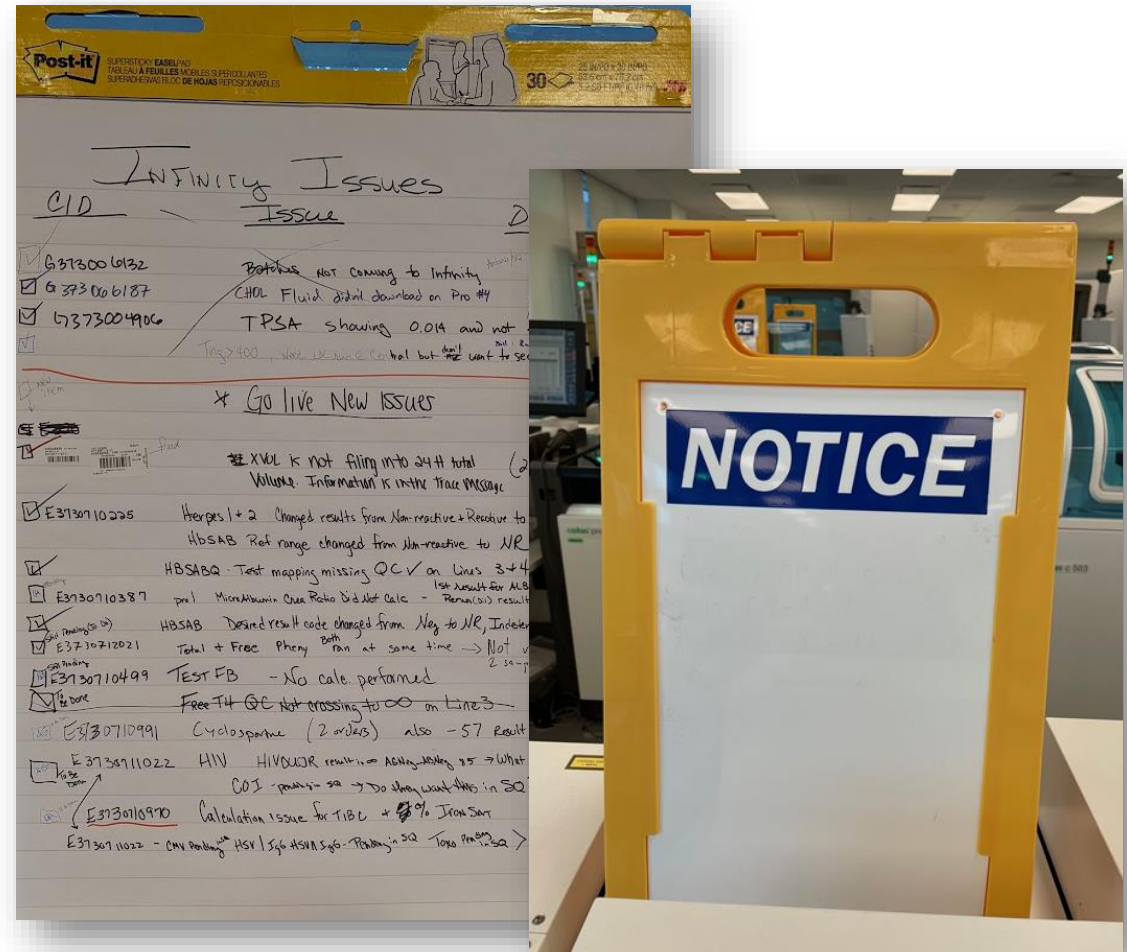 Post-it
SUPERSTICKY EASEL PAD
TABLEAU À FEUILLES MOBILES SUPERCOLLANTES
SUPERADHESIVAS BLOC DE HOJAS REPOSICIONABLES
30
INFINITY ISSUES
CID
ISSUE
D
G373006132 Batches NOT coming to Infinity
G373066187 CHOL Fluid didn't download on Pro #4
G373004906 TPSA showing 0.014 and not
Trig > 400, but don't want to see
* Go live New Issues
fixed
XVOL is not filing into 24 H total
Volume. Information is in the trace message
E3730710225 Herpes 1 + 2 Changed results from Non-reactive + Reactive to
HbSAB Ref range changed from Non-reactive to NR
HBSABQ - Test mapping missing QC ✓ on Lines 3 + 4
1st result for ALB
E3730710387 pro 1 MicroAlbumin Crea Ratio Did Not Calc - Rerun result
HBSAB Desired result code changed from Neg to NR,
E3730712021 Total + Free Pheny Both ran at same time → Not
E3730710499 TEST FB - No calc. performed
To Be Done Free T4 QC Not crossing to ∞ on Line 3
E3730710991 Cyclosporine (2 orders) also -57 Result
E3730711022 HIV HIVDUOR result in ∞ → What
To Be Done
COI - pending in SQ → Do they want this in SQ
E3730710970 Calculation Issue for TIBC + % Iron Sat
E3730711022 - CMV Pending HSV 1 IgG - Pending in SQ Toxo Pending in SQ
NOTICE
CE
c 503